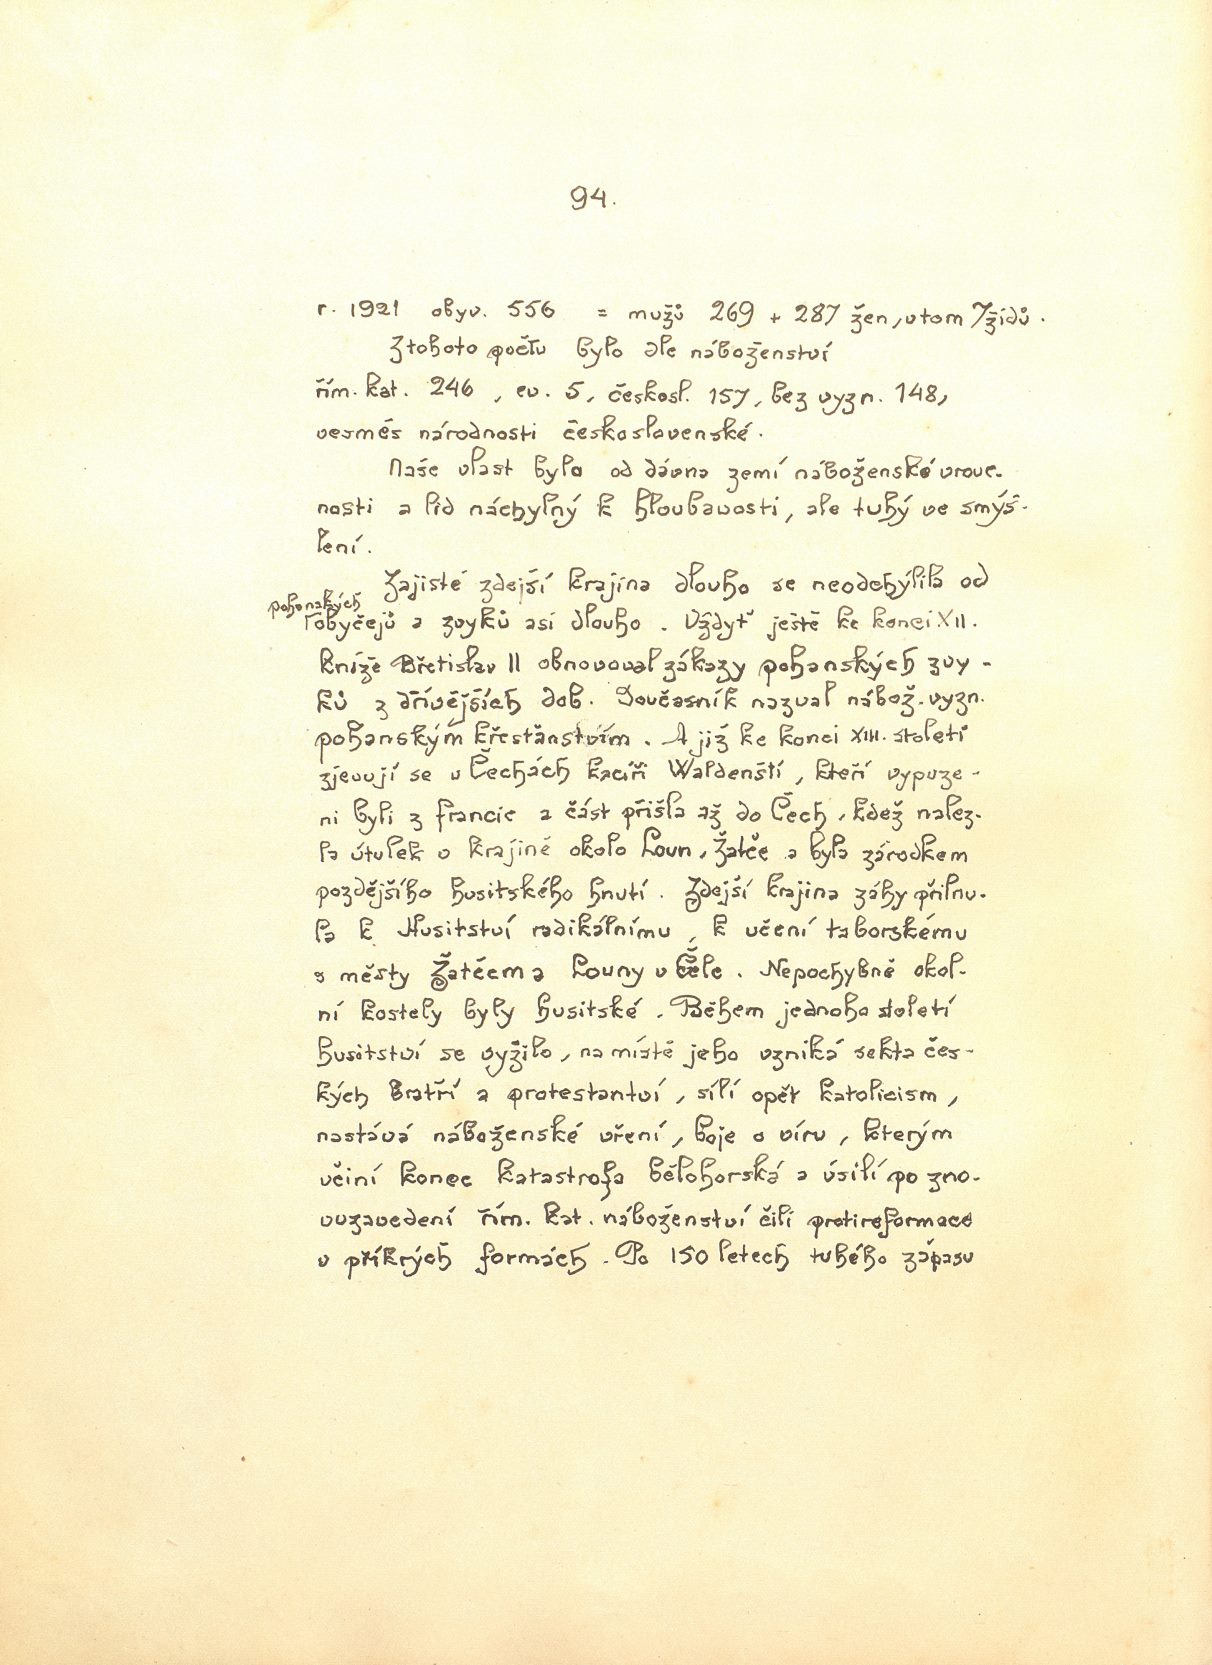 94.
r. 1921 obyv. 556 = mužů 269 + 287 žen, v tom 7 židů.
Z tohoto počtu bylo dle náboženství
řím. kat. 246, ev. 5, českosl. 157, bez vyzn. 148,
vesměs národnosti československé.
Naše vlast byla od dávna zemí náboženské vrouc-
nosti a lid náchylný k hloubavosti, ale tuhý ve smýš-
lení.
Zajisté zdejší krajina dlouho se neodchýlila od
pohanských
obyčejů a zvyků asi dlouho. Vždyť ještě ke konci XII.
kníže Břetislav II obnovoval zákazy pohanských zvy-
ků z dřívějších dob. Současník nazval nábož. vyzn.
pohanským křesťanstvím. A již ke konci XIII. století
zjevují se v Čechách kacíři Waldenští, kteří vypuze-
ni byli z francie a část přišla až do Čech, kdež nalez-
la útulek v krajině okolo Loun, Žatče a byla zárodkem
pozdějšího husitského hnutí. Zdejší krajina záhy přilnu-
la k Husitství radikálnímu, k učení taborskému
s městy Žatécem a Louny v čele. Nepochybně okol-
ní kostely byly husitské. Během jednoho století
husitství se vyžilo, na místě jeho vzniká sekta čes-
kých bratří a protestantví, sílí opět katolicism,
nastává náboženské vření, boje o víru, kterým
učiní konec katastrofa bělohorská a úsilí po zno-
vuzavedení řím. kat. náboženství čili protireformace
v příkrých formách. Po 150 letech tuhého zápasu